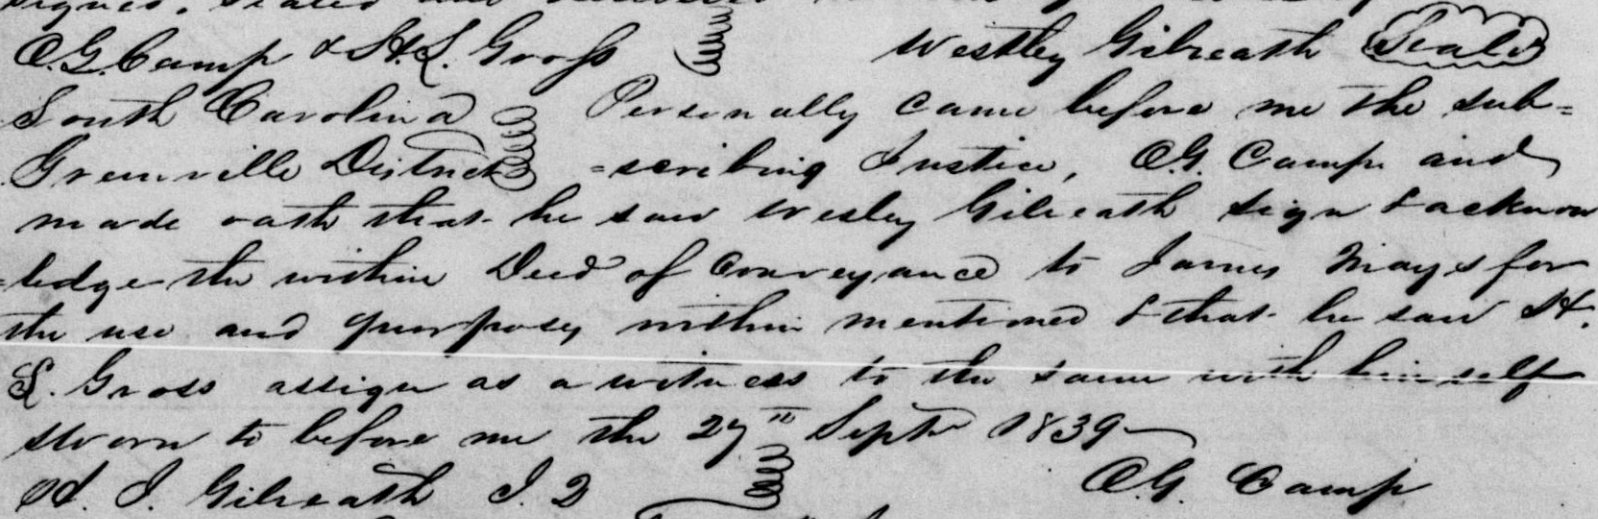 signed, sealed and delivered
C.G. Camp & H.L. Gross Westley Gilreath Seal
South Carolina Personally came before me the sub=
Greenville District =scribing Justice, C.G. Camp and
made oath that he saw Wesley Gilreath sign & acknow
=ledge the within Deed of Conveyance to James Mays for
the use and purposes within mentioned & that he saw H.
L. Gross assign as a witness to the same with himself
sworn to before me the 27th Septr 1839
H. J. Gilreath J. Q C.G. Camp